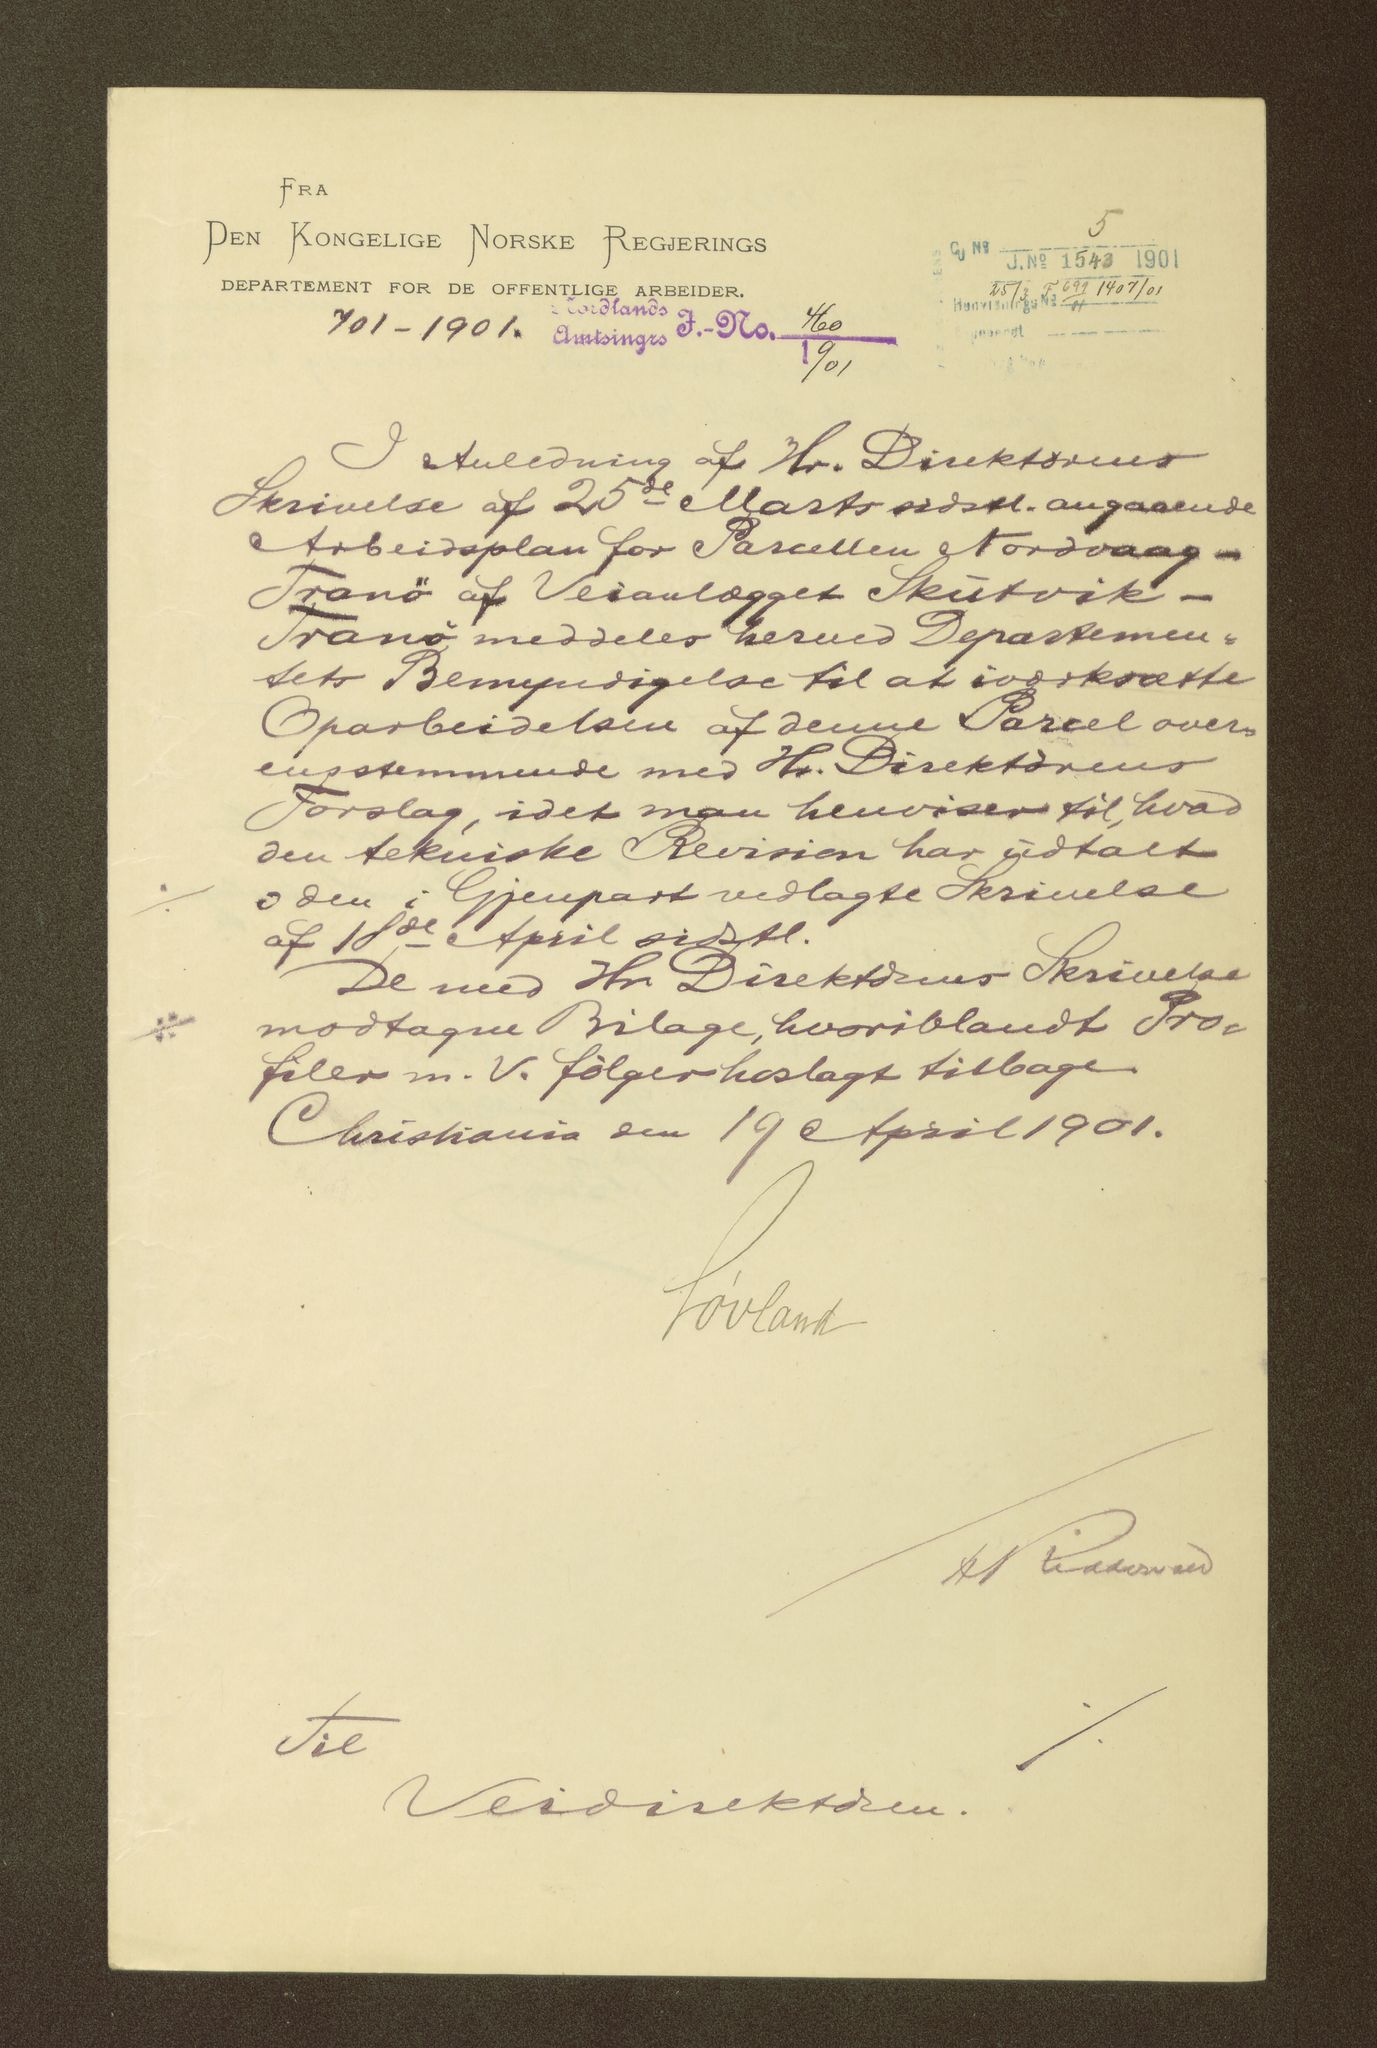 FRA
DEN KONGELIGE NORSKE REGJERINGS
DEPARTEMENT FOR DE OFFENTLIGE ARBEIDER.
701-1901.
Nordlands
Amtsingrs J.-No. 460
1901
5
GJ No
J.No 1543 1901
25/3 F 699 1407/01
Henvisnings No
I Anledning af Hr. Direktørens
Skrivelse af 25de Marts sidstl. angaaende
Arbeidsplan for Parcellen Nordvaag-
Tranö af Veianlægget Skutvik-
Tranö meddeles herved Departemen=
tets Bemyndigelse til at iværksætte
Oparbeidelsen af denne Parcel over=
ensstemmende med Hr. Direktørens
Forslag, idet man henviser til, hvad
den tekniske Revision har udtalt
i den i Gjenpart vedlagte Skrivelse
af 18de April sidstl.
De med Hr Direktørens Skrivelse
modtagne Bilage, hvoriblandt Pro=
filer m. V. fölger hoslagt tilbage.
Christiania den 19 April 1901.
Løvland
Til
Veidirektøren.